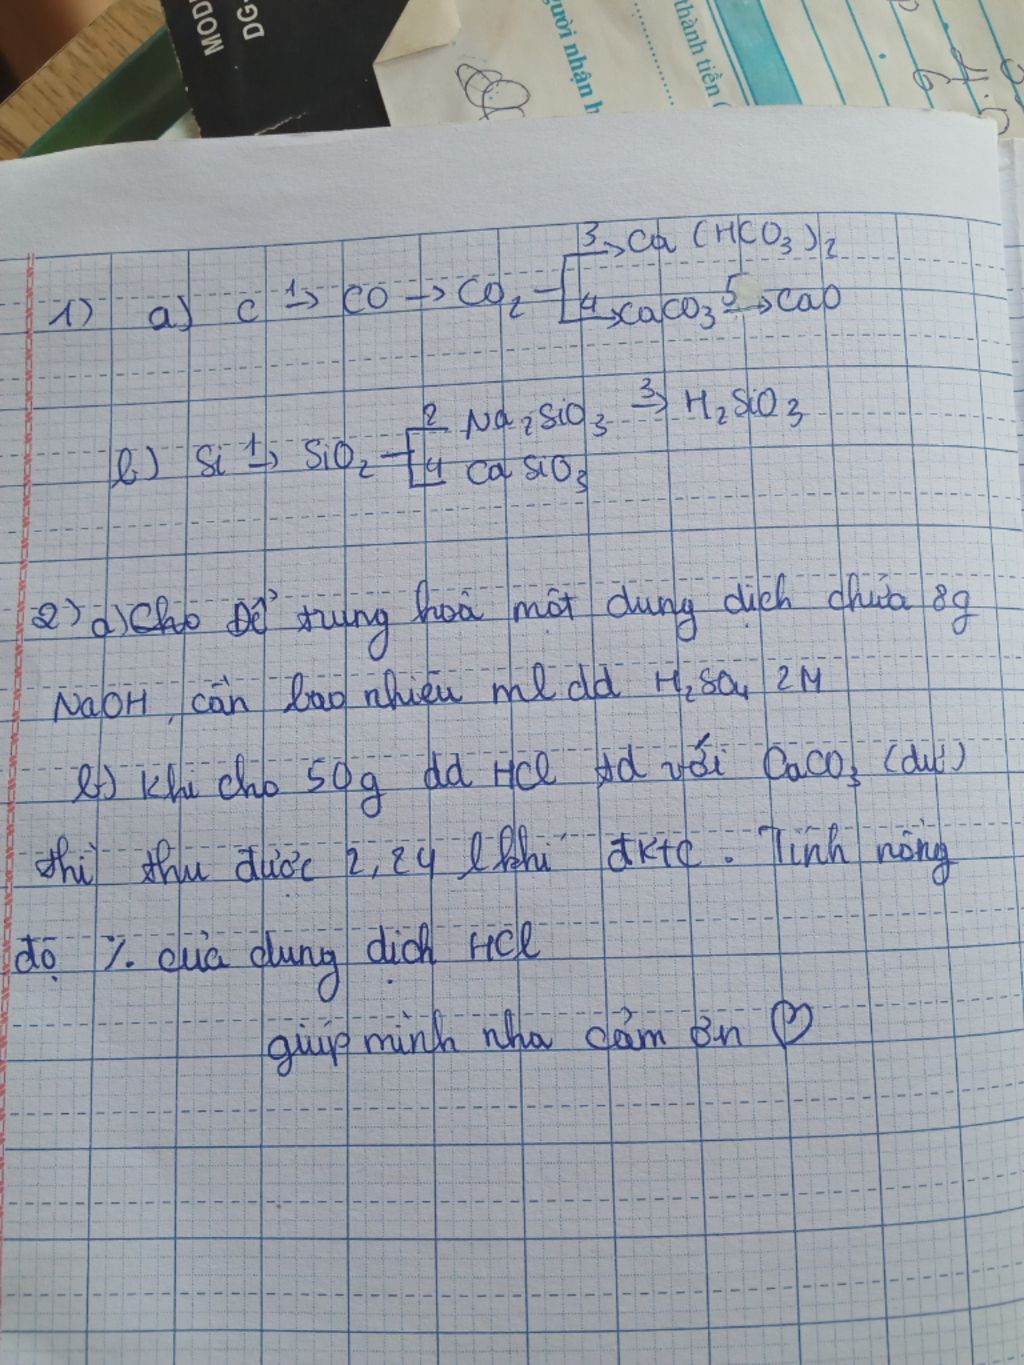 MOD
DG-
gười nhận h
thành tiền (
1) a) C 1→ CO → CO2 3→ Ca (HCO3)2
4→ CaCO3 5→ CaO
b) Si 1→ SiO2 2 Na2SiO3 3→ H2SiO3
4 CaSiO3
2) a) Cho Để trung hoà một dung dịch chứa 8g
NaOH, cần bao nhiêu ml dd H2SO4 2M
b) Khi cho 50g dd HCl td với CaCO3 (dư)
thì thu được 2,24 l khí đktc. Tính nồng
độ % của dung dịch HCl
giúp mình nha cảm ơn ♡